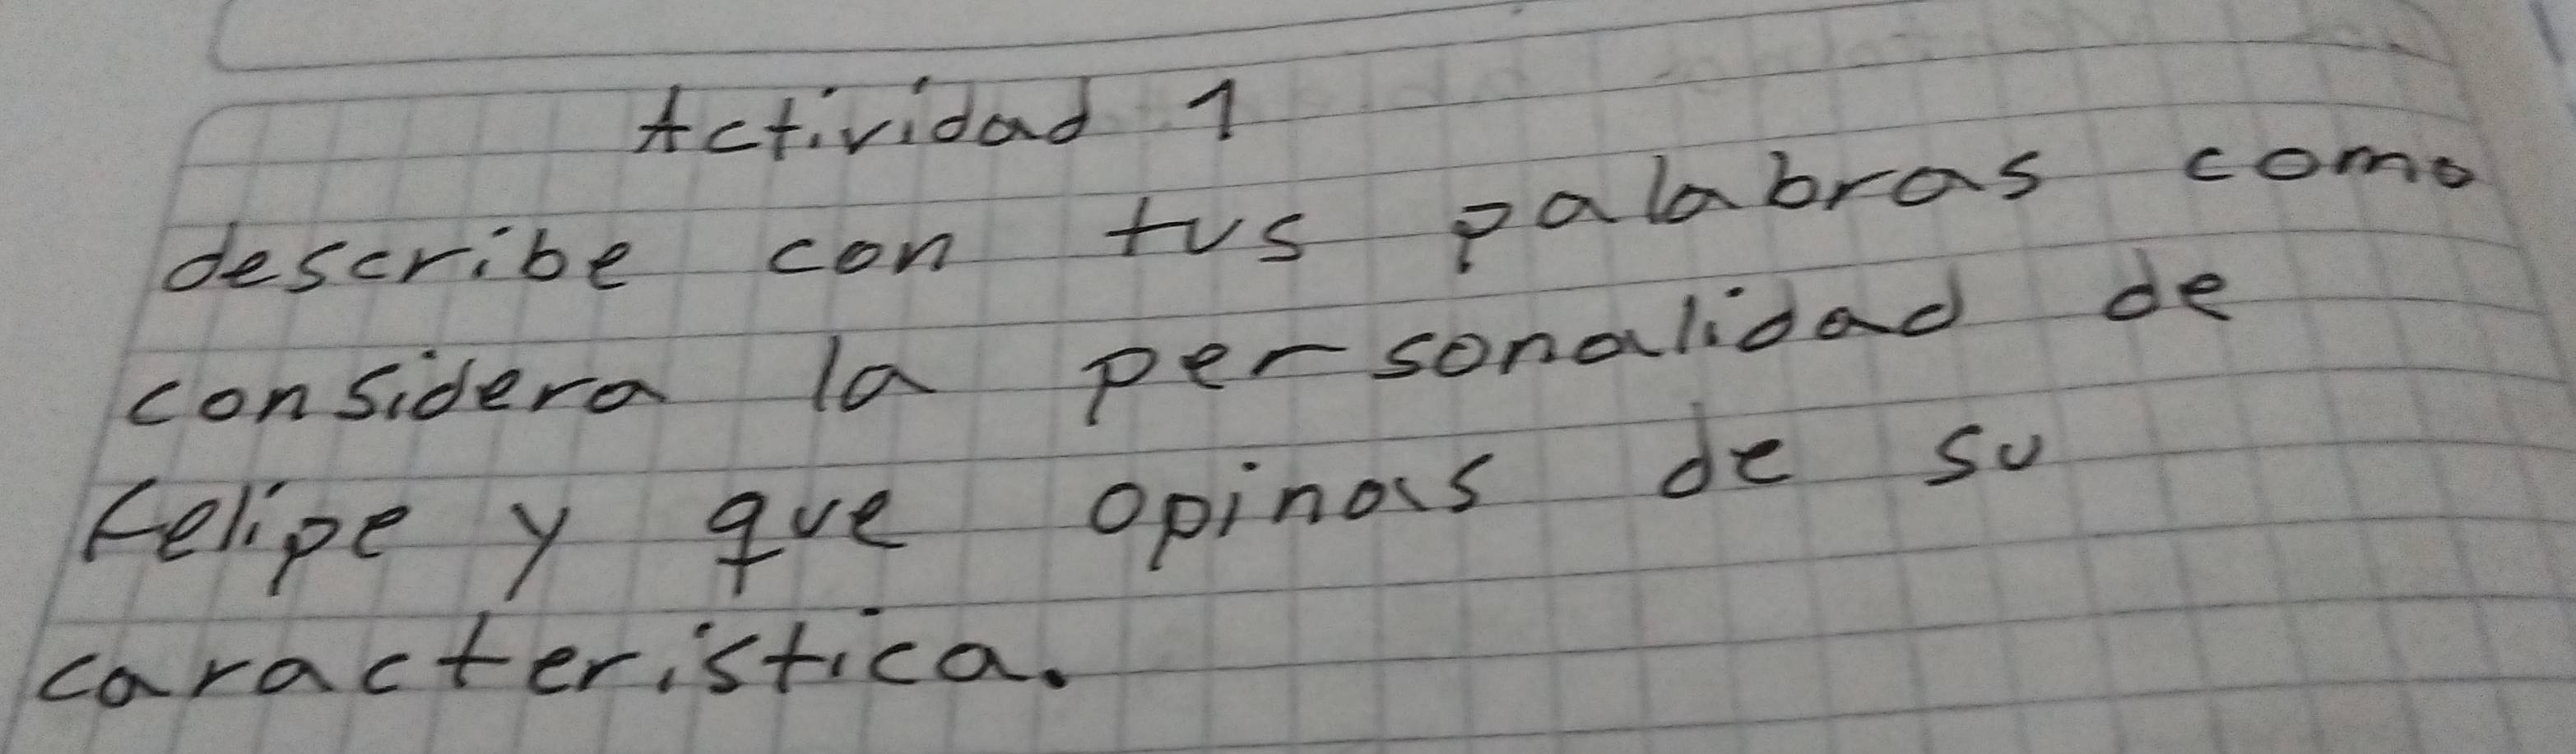 Actividad 1
describe con tus palabras como
considera la personalidad de
Felipe y que opinas de su
caracteristica.